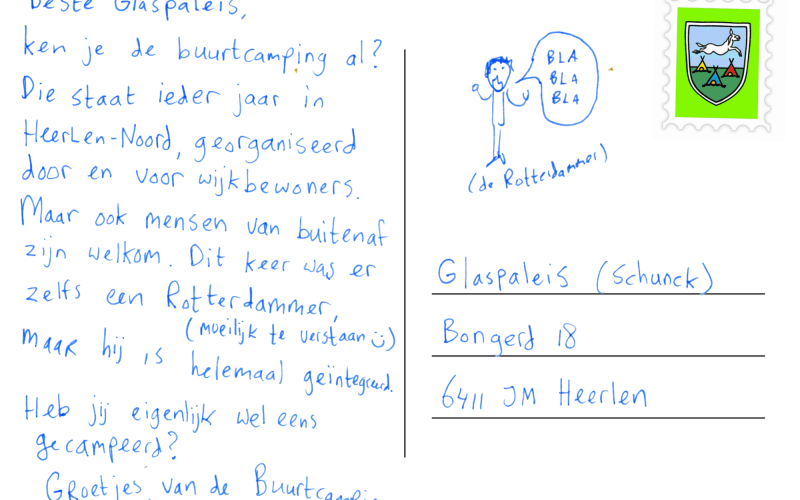 Beste Glaspaleis,
ken je de buurtcamping al?
Die staat ieder jaar in
Heerlen-Noord, georganiseerd
door en voor wijkbewoners.
Maar ook mensen van buitenaf
zijn welkom. Dit keer was er
zelfs een Rotterdammer,
(moeilijk te verstaan ☺)
maar hij is helemaal geïntegreerd.
Heb jij eigenlijk wel eens
gecampeerd?
Groetjes van de Buurtcamping
BLA
BLA
BLA
(de Rotterdammer)
Glaspaleis (Schunck)
Bongerd 18
6411 JM Heerlen